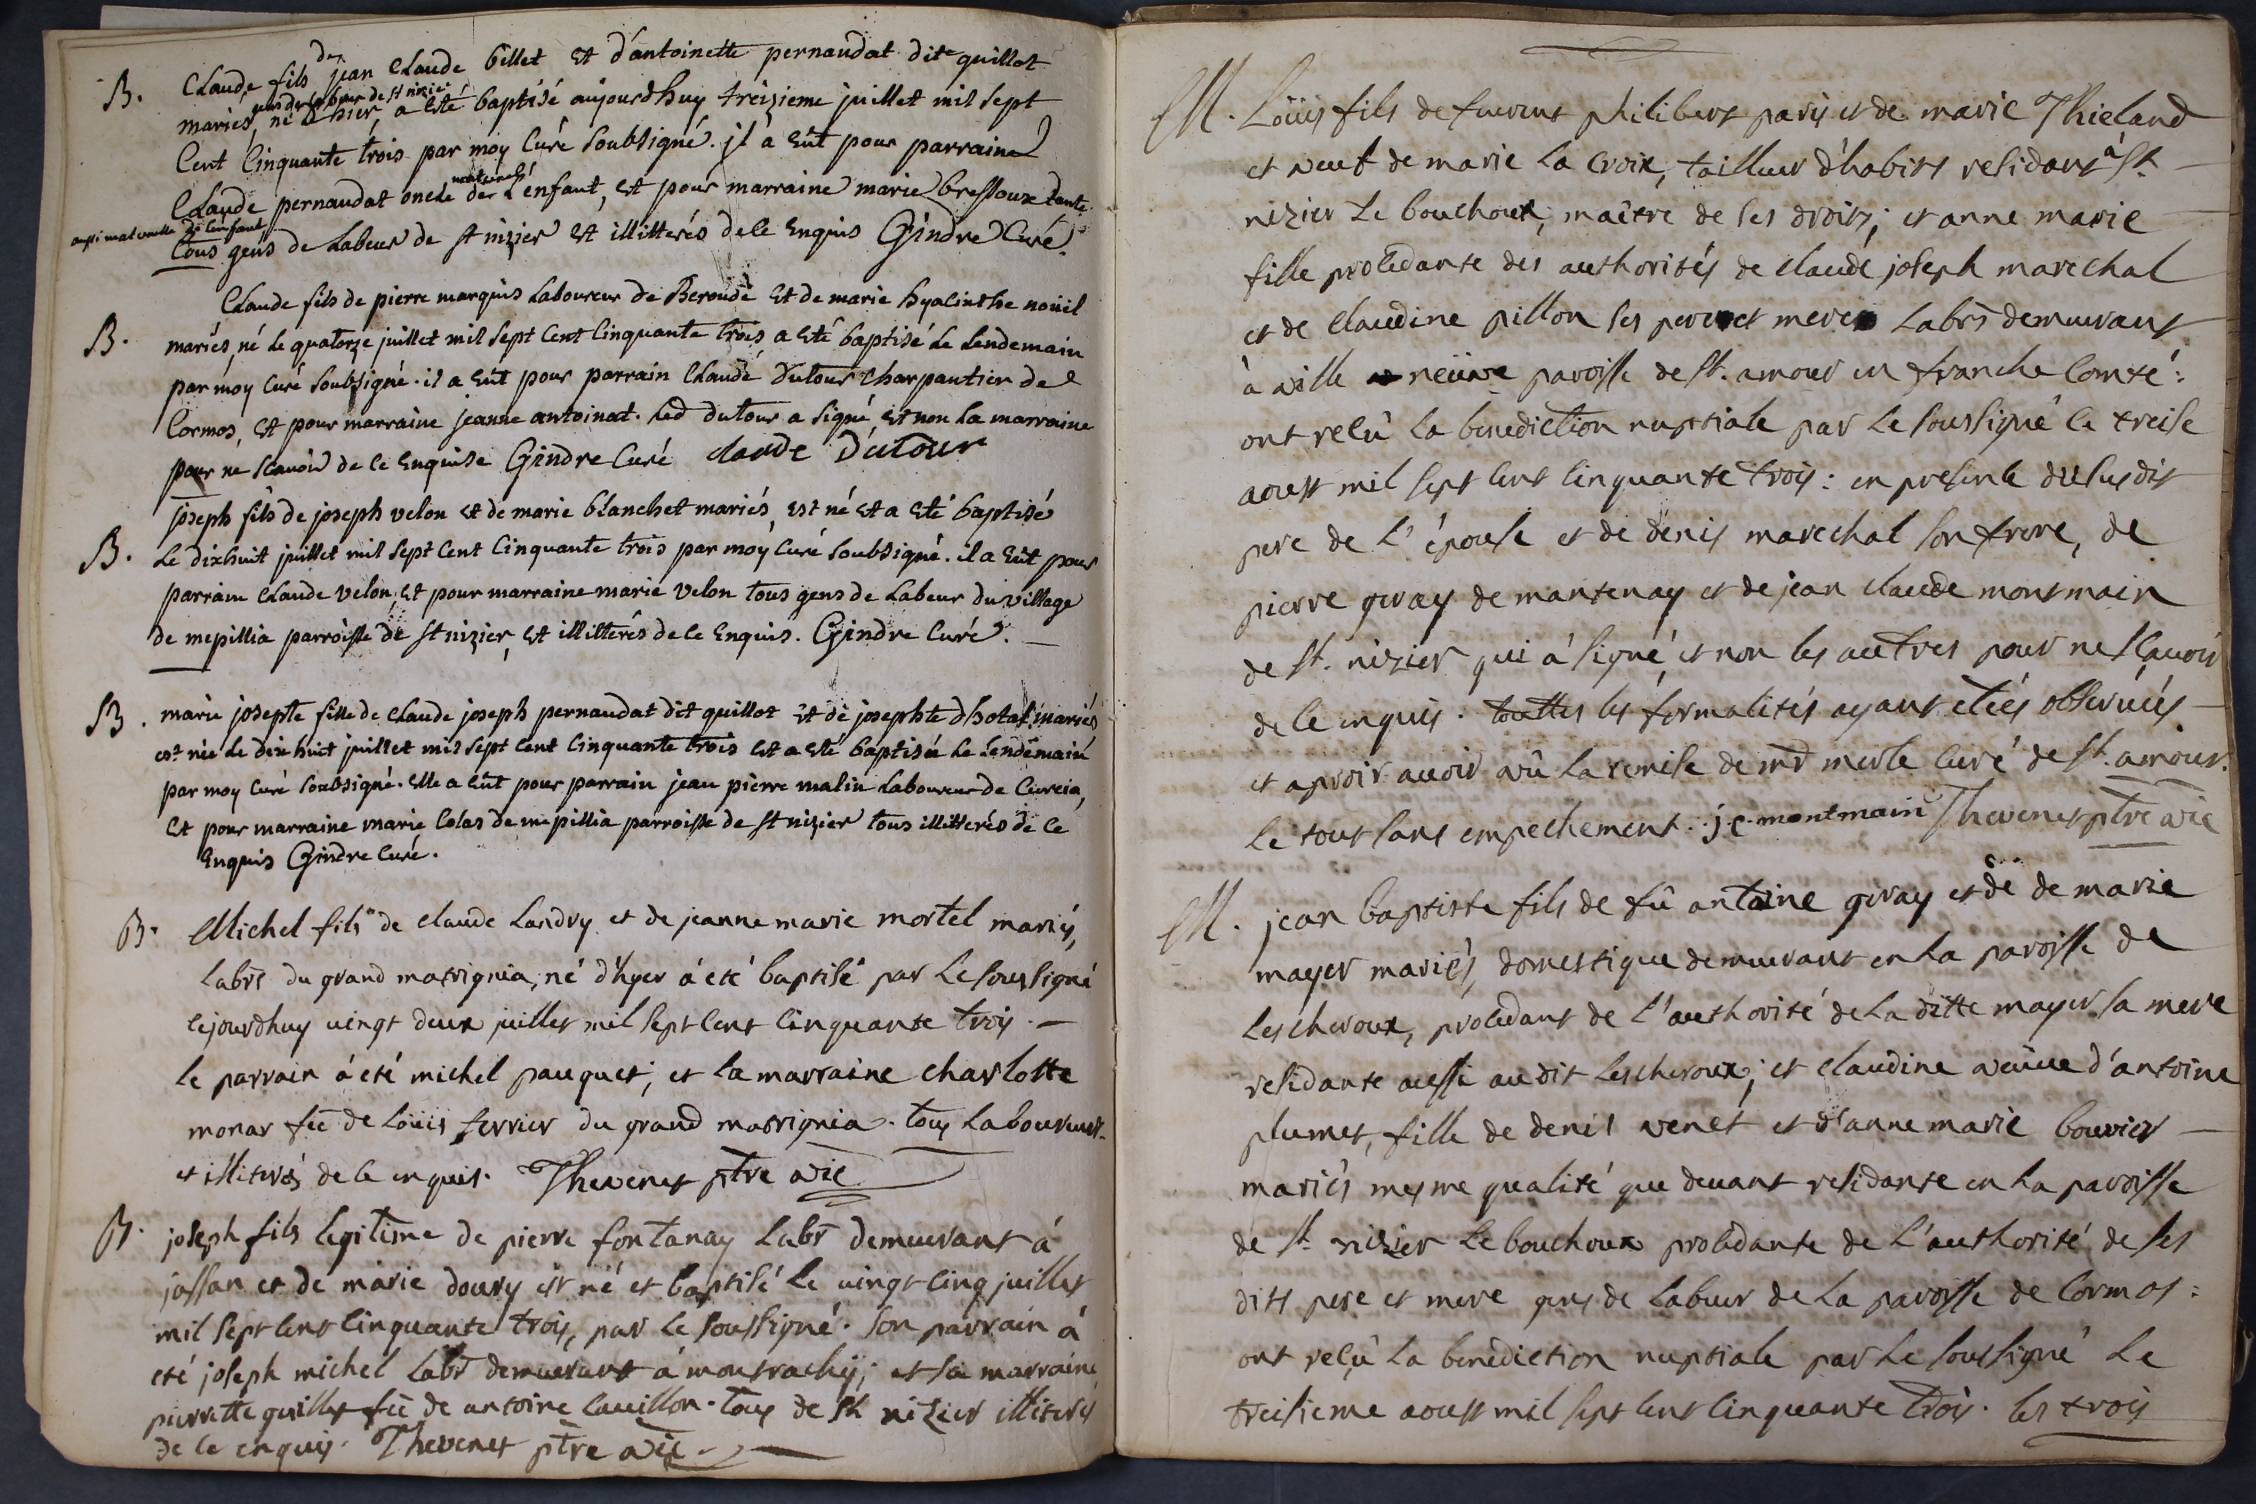 B. Claude fils de jean Claude billet et d'antoinette pernaudat dit quillot
mariés, gens de labeur de st nizier né d'hier, a esté baptisé aujourdhuy treizieme juillet mil sept
Cent Cinquante trois par moy Curé soubsigné. il a eût pour parrain
Claude pernaudat oncle maternel de L'enfant, et pour marraine marie bressoux tante
aussi maternelle de lenfant
tous gens de Labeur de st nizier et illitterés de ce Enquis Gindre Curé.
Claude fils de pierre marquis Laboureur de Beroude et de marie hyacinthe nouil
B. mariés, né le quatorze juillet mil sept Cent Cinquante trois a eté baptisé Le Lendemain
par moy Curé soubsigné. il a eût pour parrain Claude Dutour Charpantier de
Cormos, et pour marraine jeanne antoinat. Led dutour a signé, et non La marraine
pour ne scavoir de ce Enquise Gindre Curé claude Dutour
joseph fils de joseph velon et de marie blanchet mariés, est né et a eté baptisé
B. Le dixhuit juillet mil sept Cent Cinquante trois par moy Curé soubsigné. il a eût pour
parrain Claude velon, et pour marraine marie velon tous gens de Labeur du village
de mepillia parroisse de st nizier, et illitterés de ce Enquis. Gindre Curé.
B. marie josepte fille de Claude joseph pernaudat dit quillot et de josephte dhotal mariés
est née Le dix huit juillet mil sept cent Cinquante trois et a eté baptisée Le Lendemain
par moy Curé soubsigné. elle a eût pour parrain jean pierre malin Laboureur de Curcia,
et pour marraine marie Colas de mepillia parroisse de st nizier tous illitterés de ce
Enquis Gindre Curé.
B. Michel fils de claude Landry et de jeanne marie mortel mariés,
Labrs du grand matrignia, né d'hyer á eté baptisé par Le soussigné
cejourdhuy vingt deux juillet mil sept cent cinquante trois. —
le parrain á eté michel pauquet; et la marraine charlotte
monar fe de Loüis ferrier du grand matrignia. tous Laboureurs
et illiterés de ce enquis. Thevenet ptre vic
B. joseph fils legitime de pierre fontanay Labr demeurant á
jassan et de marie doury est né et baptisé Le vingt cinq juillet
mil sept cent cinquante trois, par Le soussigné. son parrain á
eté joseph michel Labr demeurant á montrachij; et sa marraine
pierrette quillet fe de antoine cavillon. tous de st nizier illiterés
de ce enquis. Thevenet ptre vic.
M. Loüis fils de furent philibert paris et de marie Thieland
et veuf de marie la croix, tailleur d'habits residant á St.
nizier Le bouchoux, maître de ses droits; et anne marie
fille procedante des authorités de claude joseph marechal
et de claudine pillon ses pere et mere Labrs demeurant
à ville neüve paroisse de St. amour en franche comté:
ont reçû la benediction nuptiale par Le soussigné le treise
aoust mil sept cent cinquante trois: en presence du susdit
pere de l'épouse et de denis marechal son frere, de
pierre givay de mantenay et de jean claude montmain
de St. nizier qui á signé, et non les autres pour ne sçavoir
de ce enquis. touttes les formalités ayant etées observées —
et aproir avoir vû la remise de mr merle curé de St. amour.
le tout sans empechement. j c montmain Thevenet ptre vic
M. jean baptiste fils de fû antoine givay et de de marie
mayer mariés, domestique demeurant en La paroisse de
Lescheroux, procedant de l'authorité de La ditte mayer sa mere
residante aussi audit Lescheroux; et claudine veüve d'antoine
plumet, fille de denis venet et d'anne marie bouvier —
mariés mesme qualité que devant residante en La paroisse
de St. nizier Le bouchoux procedante de L'authorité de ses
dits pere et mere gens de Labeur de La paroisse de Cormos:
ont reçû la benediction nuptiale par Le soussigné Le
treisieme aoust mil sept cent cinquante trois. les trois